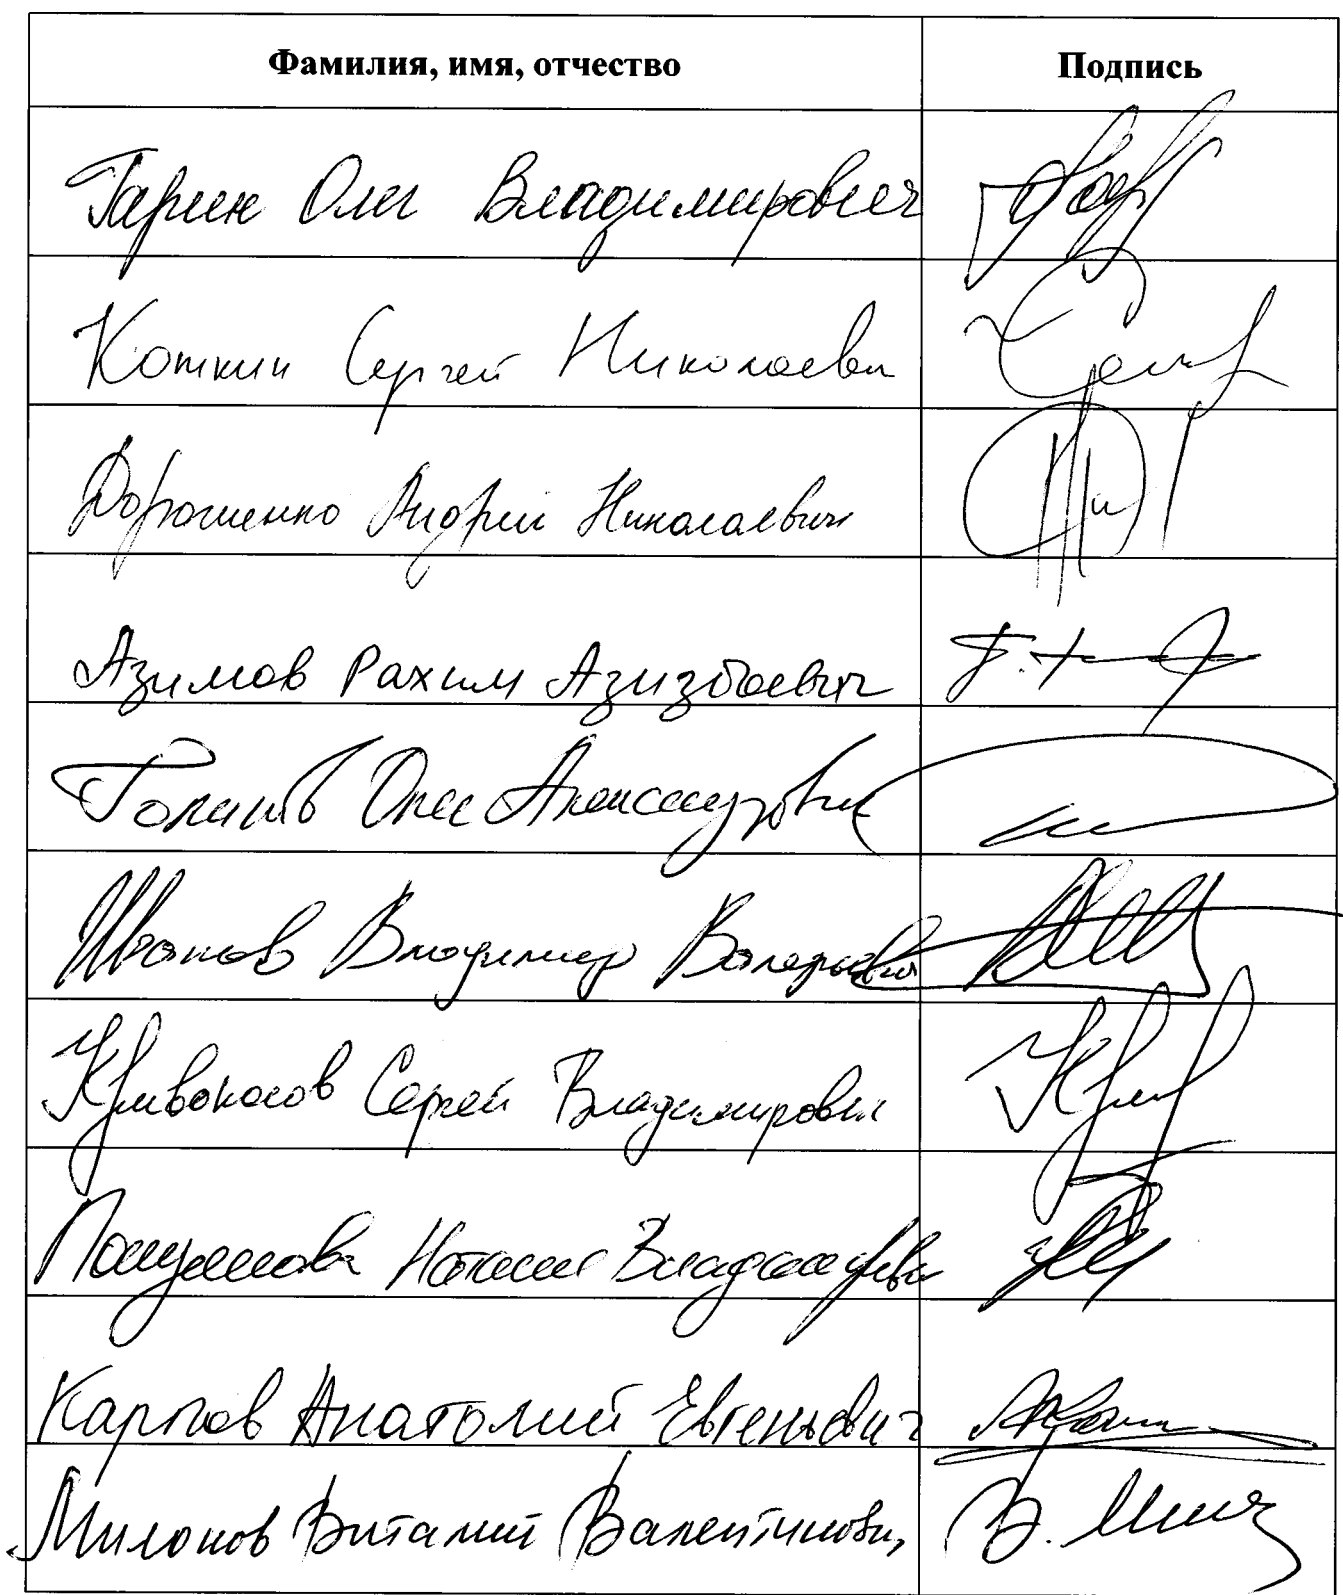 Фамилия, имя, отчество Подпись
Гарин Олег Владимирович
Коткин Сергей Николаевич
Дорошенко Андрей Николаевич
Азимов Рахим Азизбоевич
Голиков Олег Александрович
Иванов Владимир Валерьевич
Кривоносов Сергей Владимирович
Наталия Владимировна
Карпов Анатолий Евгеньевич
Милонов Виталий Валентинович